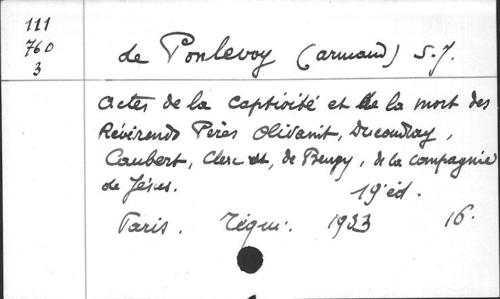 111
760
3
de Ponlevoy (armand) S.J.
Actes de la captivité et de la mort des
Révérends Pères Olivanit, Ducoudray,
Caubert, Clerc et, de Bengy, de la compagnie
de Jésus. 19 éd.
Paris. Téqui. 1923 16.